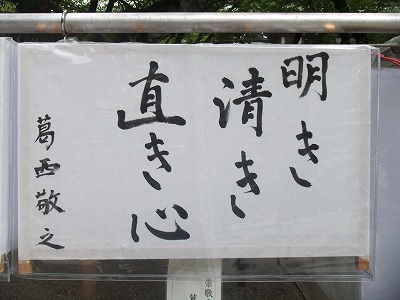 明き
清き
直き心
葛西敬之
崇敬